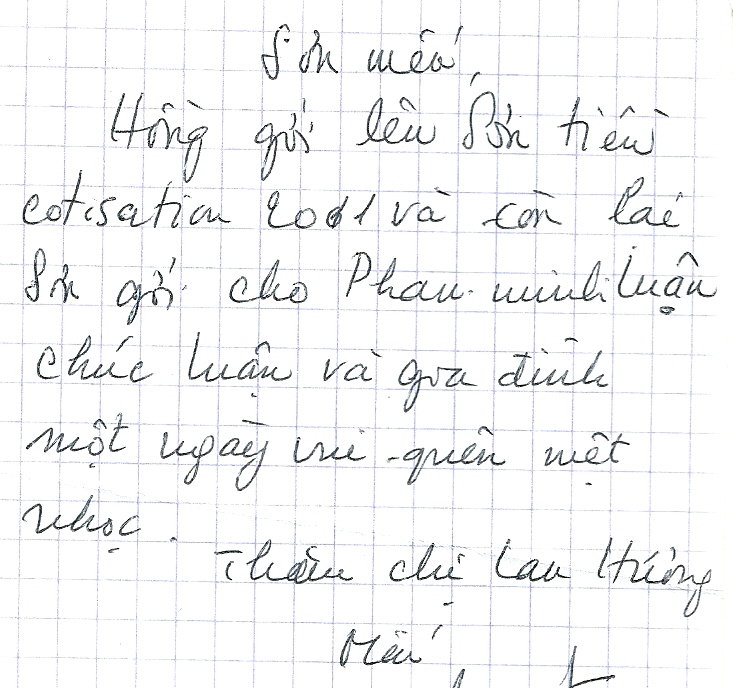 Sơn mến,
Hồng gửi lên Sơn tiền
cotisation 2001 và còn lại
Sơn gửi cho Phan minh Luận
chúc Luận và gia đình
một ngày vui quên mệt
nhọc.
Thăm chị Lan Hương
Mến